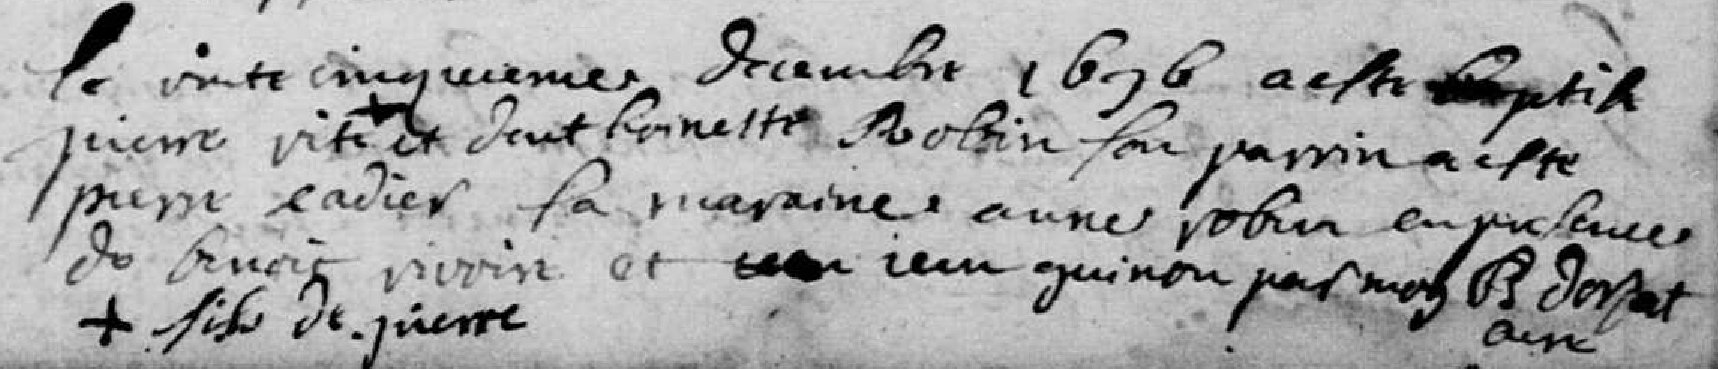 le vinte cinquiemes decembre 1676 a este baptise
pierre vite + et dent hoinette Robin son parrin a este
pierre cadier sa maraine anne robin en presence
de benoit vivin et jem guinon par moy B dorsat
+ fils de pierre